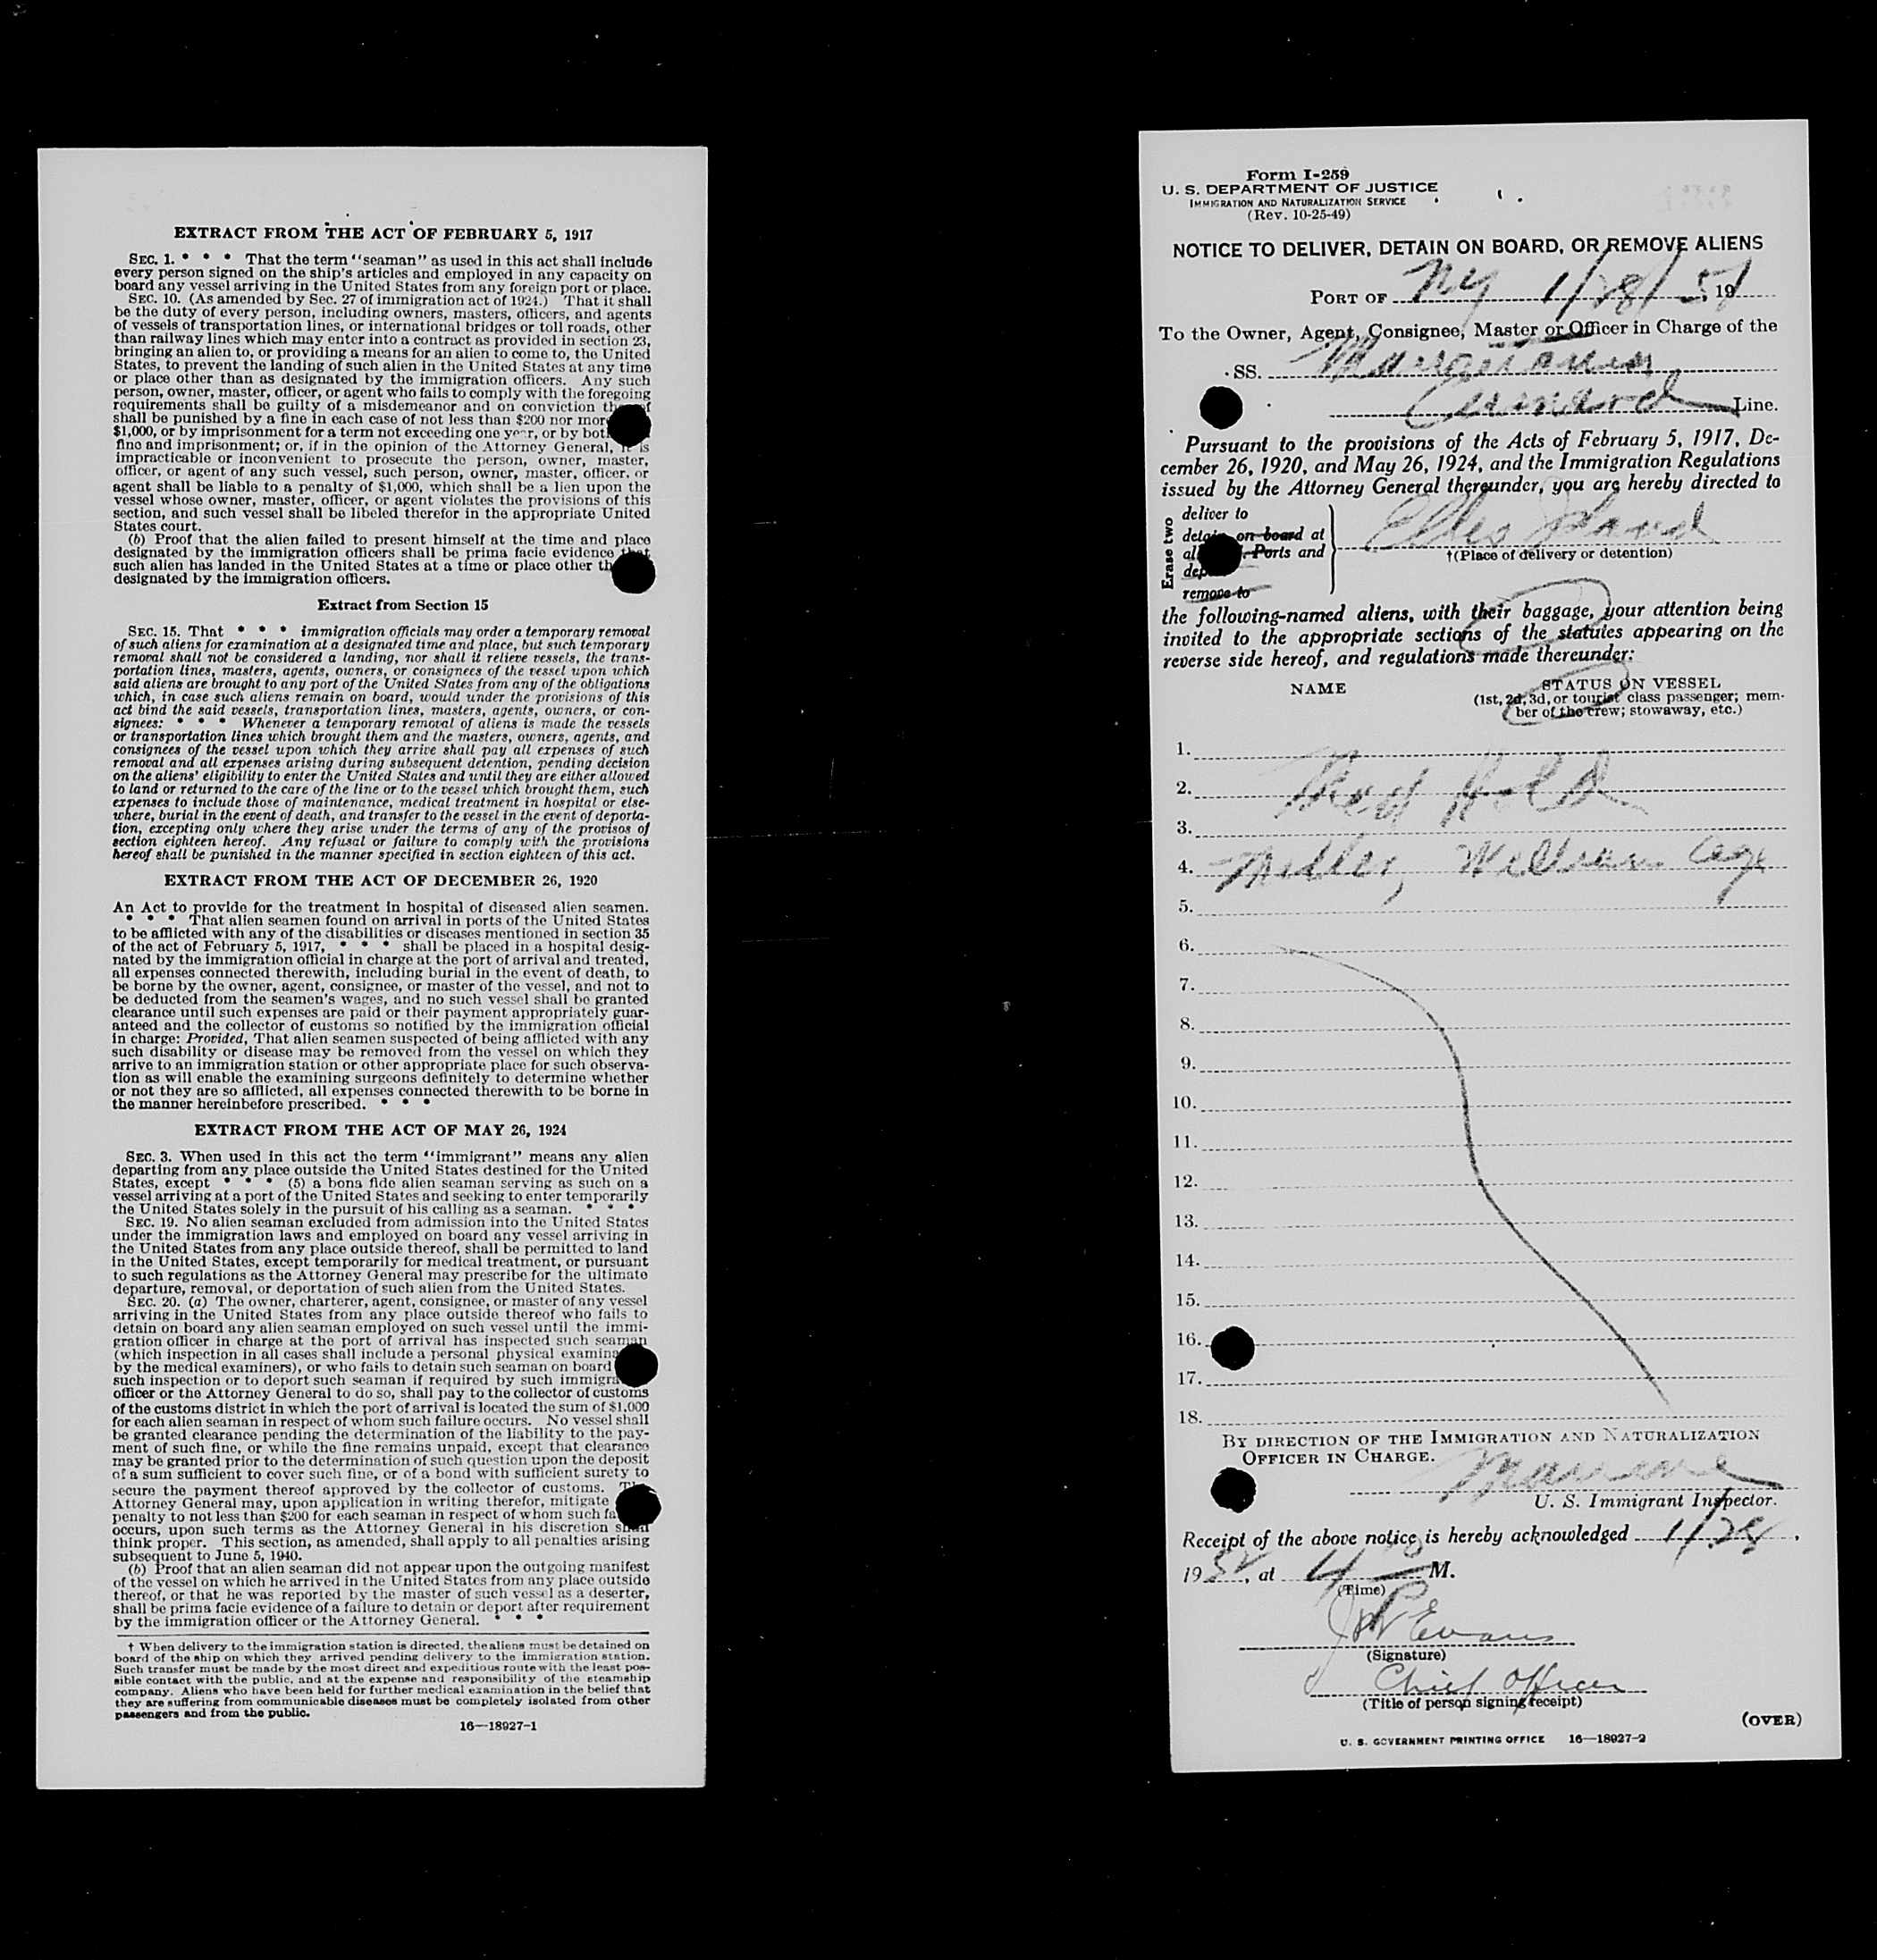 EXTRACT FROM THE ACT OF FEBRUARY 5, 1917
SEC. 1. * * * That the term "seaman" as used in this act shall include
every person signed on the ship's articles and employed in any capacity on
board any vessel arriving in the United States from any foreign port or place.
SEC. 10. (As amended by Sec. 27 of immigration act of 1924.) That it shall
be the duty of every person, including owners, masters, officers, and agents
of vessels of transportation lines, or international bridges or toll roads, other
than railway lines which may enter into a contract as provided in section 23,
bringing an alien to, or providing a means for an alien to come to, the United
States, to prevent the landing of such alien in the United States at any time
or place other than as designated by the immigration officers. Any such
person, owner, master, officer, or agent who fails to comply with the foregoing
requirements shall be guilty of a misdemeanor and on conviction
shall be punished by a fine in each case of not less than $200 nor mor
$1,000, or by imprisonment for a term not exceeding one year, or by bot
fine and imprisonment; or, if in the opinion of the Attorney General, it is
impracticable or inconvenient to prosecute the person, owner, master,
officer, or agent of any such vessel, such person, owner, master, officer, or
agent shall be liable to a penalty of $1,000, which shall be a lien upon the
vessel whose owner, master, officer, or agent violates the provisions of this
section, and such vessel shall be libeled therefor in the appropriate United
States court.
(b) Proof that the alien failed to present himself at the time and place
designated by the immigration officers shall be prima facie evidence that
such alien has landed in the United States at a time or place other th
designated by the immigration officers.
Extract from Section 15
SEC. 15. That * * * immigration officials may order a temporary removal
of such aliens for examination at a designated time and place, but such temporary
removal shall not be considered a landing, nor shall it relieve vessels, the trans-
portation lines, masters, agents, owners, or consignees of the vessel upon which
said aliens are brought to any port of the United States from any of the obligations
which, in case such aliens remain on board, would under the provisions of this
act bind the said vessels, transportation lines, masters, agents, owners, or con-
signees: * * * Whenever a temporary removal of aliens is made the vessels
or transportation lines which brought them and the masters, owners, agents, and
consignees of the vessel upon which they arrive shall pay all expenses of such
removal and all expenses arising during subsequent detention, pending decision
on the aliens' eligibility to enter the United States and until they are either allowed
to land or returned to the care of the line or to the vessel which brought them, such
expenses to include those of maintenance, medical treatment in hospital or else-
where, burial in the event of death, and transfer to the vessel in the event of deporta-
tion, excepting only where they arise under the terms of any of the provisos of
section eighteen hereof. Any refusal or failure to comply with the provisions
hereof shall be punished in the manner specified in section eighteen of this act.
EXTRACT FROM THE ACT OF DECEMBER 26, 1920
An Act to provide for the treatment in hospital of diseased alien seamen.
* * * That alien seamen found on arrival in ports of the United States
to be afflicted with any of the disabilities or diseases mentioned in section 35
of the act of February 5, 1917, * * * shall be placed in a hospital desig-
nated by the immigration official in charge at the port of arrival and treated,
all expenses connected therewith, including burial in the event of death, to
be borne by the owner, agent, consignee, or master of the vessel, and not to
be deducted from the seamen's wages, and no such vessel shall be granted
clearance until such expenses are paid or their payment appropriately guar-
anteed and the collector of customs so notified by the immigration official
in charge: Provided, That alien seamen suspected of being afflicted with any
such disability or disease may be removed from the vessel on which they
arrive to an immigration station or other appropriate place for such observa-
tion as will enable the examining surgeons definitely to determine whether
or not they are so afflicted, all expenses connected therewith to be borne in
the manner hereinbefore prescribed. * * *
EXTRACT FROM THE ACT OF MAY 26, 1924
SEC. 3. When used in this act the term "immigrant" means any alien
departing from any place outside the United States destined for the United
States, except * * * (5) a bona fide alien seaman serving as such on a
vessel arriving at a port of the United States and seeking to enter temporarily
the United States solely in the pursuit of his calling as a seaman. * * *
SEC. 19. No alien seaman excluded from admission into the United States
under the immigration laws and employed on board any vessel arriving in
the United States from any place outside thereof, shall be permitted to land
in the United States, except temporarily for medical treatment, or pursuant
to such regulations as the Attorney General may prescribe for the ultimate
departure, removal, or deportation of such alien from the United States.
SEC. 20. (a) The owner, charterer, agent, consignee, or master of any vessel
arriving in the United States from any place outside thereof who fails to
detain on board any alien seaman employed on such vessel until the immi-
gration officer in charge at the port of arrival has inspected such seaman
(which inspection in all cases shall include a personal physical examina
by the medical examiners), or who fails to detain such seaman on board
such inspection or to deport such seaman if required by such immigra
officer or the Attorney General to do so, shall pay to the collector of customs
of the customs district in which the port of arrival is located the sum of $1,000
for each alien seaman in respect of whom such failure occurs. No vessel shall
be granted clearance pending the determination of the liability to the pay-
ment of such fine, or while the fine remains unpaid, except that clearance
may be granted prior to the determination of such question upon the deposit
of a sum sufficient to cover such fine, or of a bond with sufficient surety to
secure the payment thereof approved by the collector of customs. The
Attorney General may, upon application in writing therefor, mitigate
penalty to not less than $200 for each seaman in respect of whom such fa
occurs, upon such terms as the Attorney General in his discretion shall
think proper. This section, as amended, shall apply to all penalties arising
subsequent to June 5, 1940.
(b) Proof that an alien seaman did not appear upon the outgoing manifest
of the vessel on which he arrived in the United States from any place outside
thereof, or that he was reported by the master of such vessel as a deserter,
shall be prima facie evidence of a failure to detain or deport after requirement
by the immigration officer or the Attorney General. * * *
† When delivery to the immigration station is directed, the aliens must be detained on
board of the ship on which they arrived pending delivery to the immigration station.
Such transfer must be made by the most direct and expeditious route with the least pos-
sible contact with the public, and at the expense and responsibility of the steamship
company. Aliens who have been held for further medical examination in the belief that
they are suffering from communicable diseases must be completely isolated from other
passengers and from the public.
16—18927-1
Form I-259
U. S. DEPARTMENT OF JUSTICE
IMMIGRATION AND NATURALIZATION SERVICE
(Rev. 10-25-49)
NOTICE TO DELIVER, DETAIN ON BOARD, OR REMOVE ALIENS
PORT OF NY 1/28/51, 19
To the Owner, Agent, Consignee, Master or Officer in Charge of the
SS. Mauretania
Cunard Line.
Pursuant to the provisions of the Acts of February 5, 1917, De-
cember 26, 1920, and May 26, 1924, and the Immigration Regulations
issued by the Attorney General thereunder, you are hereby directed to
Erase two
deliver to
detain on board at
al Ports and
dep
remove to
Ellis Island
†(Place of delivery or detention)
the following-named aliens, with their baggage, your attention being
invited to the appropriate sections of the statutes appearing on the
reverse side hereof, and regulations made thereunder:
NAME
STATUS ON VESSEL
(1st, 2d, 3d, or tourist class passenger; mem-
ber of the crew; stowaway, etc.)
1.
2. Med Hold
3.
4. Miller, William
5.
6.
7.
8.
9.
10.
11.
12.
13.
14.
15.
16.
17.
18.
BY DIRECTION OF THE IMMIGRATION AND NATURALIZATION
OFFICER IN CHARGE.
U. S. Immigrant Inspector.
Receipt of the above notice is hereby acknowledged 1/28,
19, at 4 M.
(Time)
Evans
(Signature)
Chief Officer
(Title of person signing receipt)
(OVER)
U. S. GOVERNMENT PRINTING OFFICE 16—18927-2